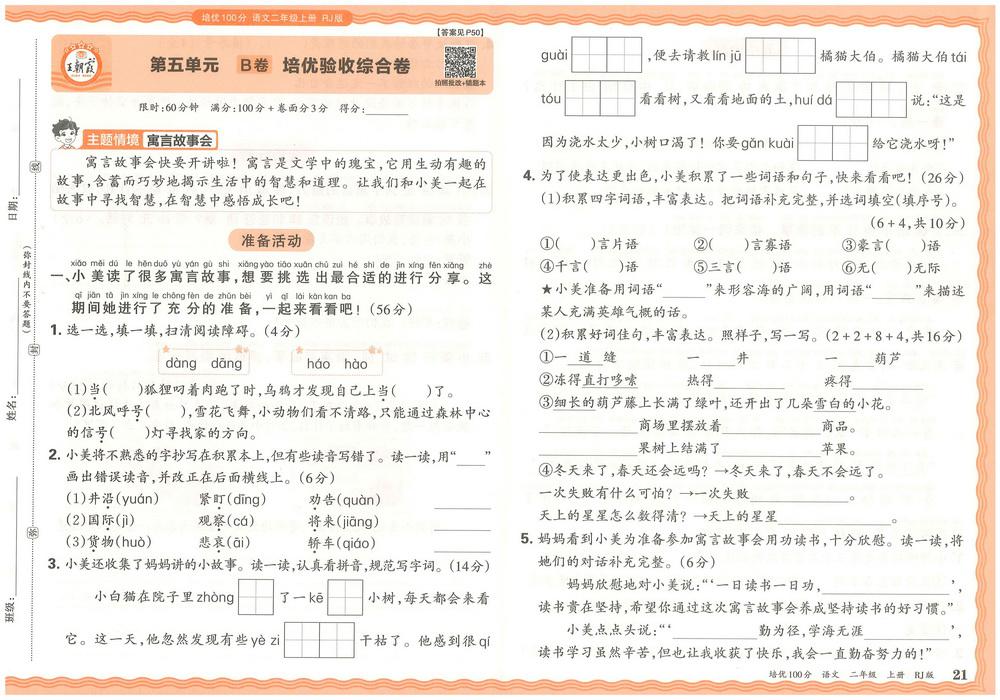 培优100分 语文二年级上册 RJ版
【答案见P50】
王朝霞
第五单元 B卷 培优验收综合卷
拍照批改+错题本
限时:60分钟 满分:100分+卷面分3分 得分:______
主题情境 寓言故事会
寓言故事会快要开讲啦！寓言是文学中的瑰宝,它用生动有趣的
故事,含蓄而巧妙地揭示生活中的智慧和道理。让我们和小美一起在
故事中寻找智慧,在智慧中感悟成长吧！
准备活动
xiǎo měi dú le hěn duō yù yán gù shi xiǎng yào tiāo xuǎn chū zuì hé shì de jìn xíng fēn xiǎng zhè
一、小美读了很多寓言故事,想要挑选出最合适的进行分享。这
qī jiān tā jìn xíng le chōng fèn de zhǔn bèi yì qǐ lái kàn kan ba
期间她进行了充分的准备,一起来看看吧！(56分)
1. 选一选,填一填,扫清阅读障碍。(4分)
dàng dāng háo hào
(1)当( )狐狸叼着肉跑了时,乌鸦才发现自己上当( )了。
(2)北风呼号( ),雪花飞舞,小动物们看不清路,只能通过森林中心
的信号( )灯寻找家的方向。
2. 小美将不熟悉的字抄写在积累本上,但有些读音写错了。读一读,用“____”
画出错误读音,并改正在后面横线上。(6分)
(1)井沿(yuán) 紧盯(dīng) 劝告(quàn) ______
(2)国际(jì) 观察(cá) 将来(jiāng) ______
(3)货物(huò) 悲哀(āi) 轿车(qiáo) ______
3. 小美还收集了妈妈讲的小故事。读一读,认真看拼音,规范写字词。(14分)
小白猫在院子里zhòng 了一kē 小树,每天都会来看
它。这一天,他忽然发现有些yè zi 干枯了。他感到很qí
guài ,便去请教lín jū 橘猫大伯。橘猫大伯tái
tóu 看看树,又看看地面的土,huí dá 说:“这是
因为浇水太少,小树口渴了！你要gǎn kuài 给它浇水呀！”
4. 为了使表达更出色,小美积累了一些词语和句子,快来看看吧！(26分)
(1)积累四字词语,丰富表达。把词语补充完整,并选词填空(填序号)。
(6+4,共10分)
①( )言片语 ②( )言寡语 ③豪言( )语
④千言( )语 ⑤三言( )语 ⑥无( )无际
★小美准备用词语“______”来形容海的广阔,用词语“______”来描述
某人充满英雄气概的话。
(2)积累好词佳句,丰富表达。照样子,写一写。(2+2+8+4,共16分)
①一 道 缝 一____井 一____葫芦
②冻得直打哆嗦 热得________ 疼得________
③细长的葫芦藤上长满了绿叶,还开出了几朵雪白的小花。
__________商场里摆放着__________商品。
__________果树上结满了__________苹果。
④冬天来了,春天还会远吗？→冬天来了,春天不会远了。
一次失败有什么可怕？→一次失败__________。
天上的星星怎么数得清？→天上的星星____________。
5. 妈妈看到小美为准备参加寓言故事会用功读书,十分欣慰。读一读,将
她们的对话补充完整。(6分)
妈妈欣慰地对小美说:“‘一日读书一日功,____________’,
读书贵在坚持,希望你通过这次寓言故事会养成坚持读书的好习惯。”
小美点点头说:“‘__________勤为径,学海无涯__________’,
读书学习虽然辛苦,但也让我收获了快乐,我会一直勤奋努力的！”
培优100分 语文 二年级 上册 RJ版 21
日期:
姓名:
班级:
(弥封线内不要答题)
线
封
弥